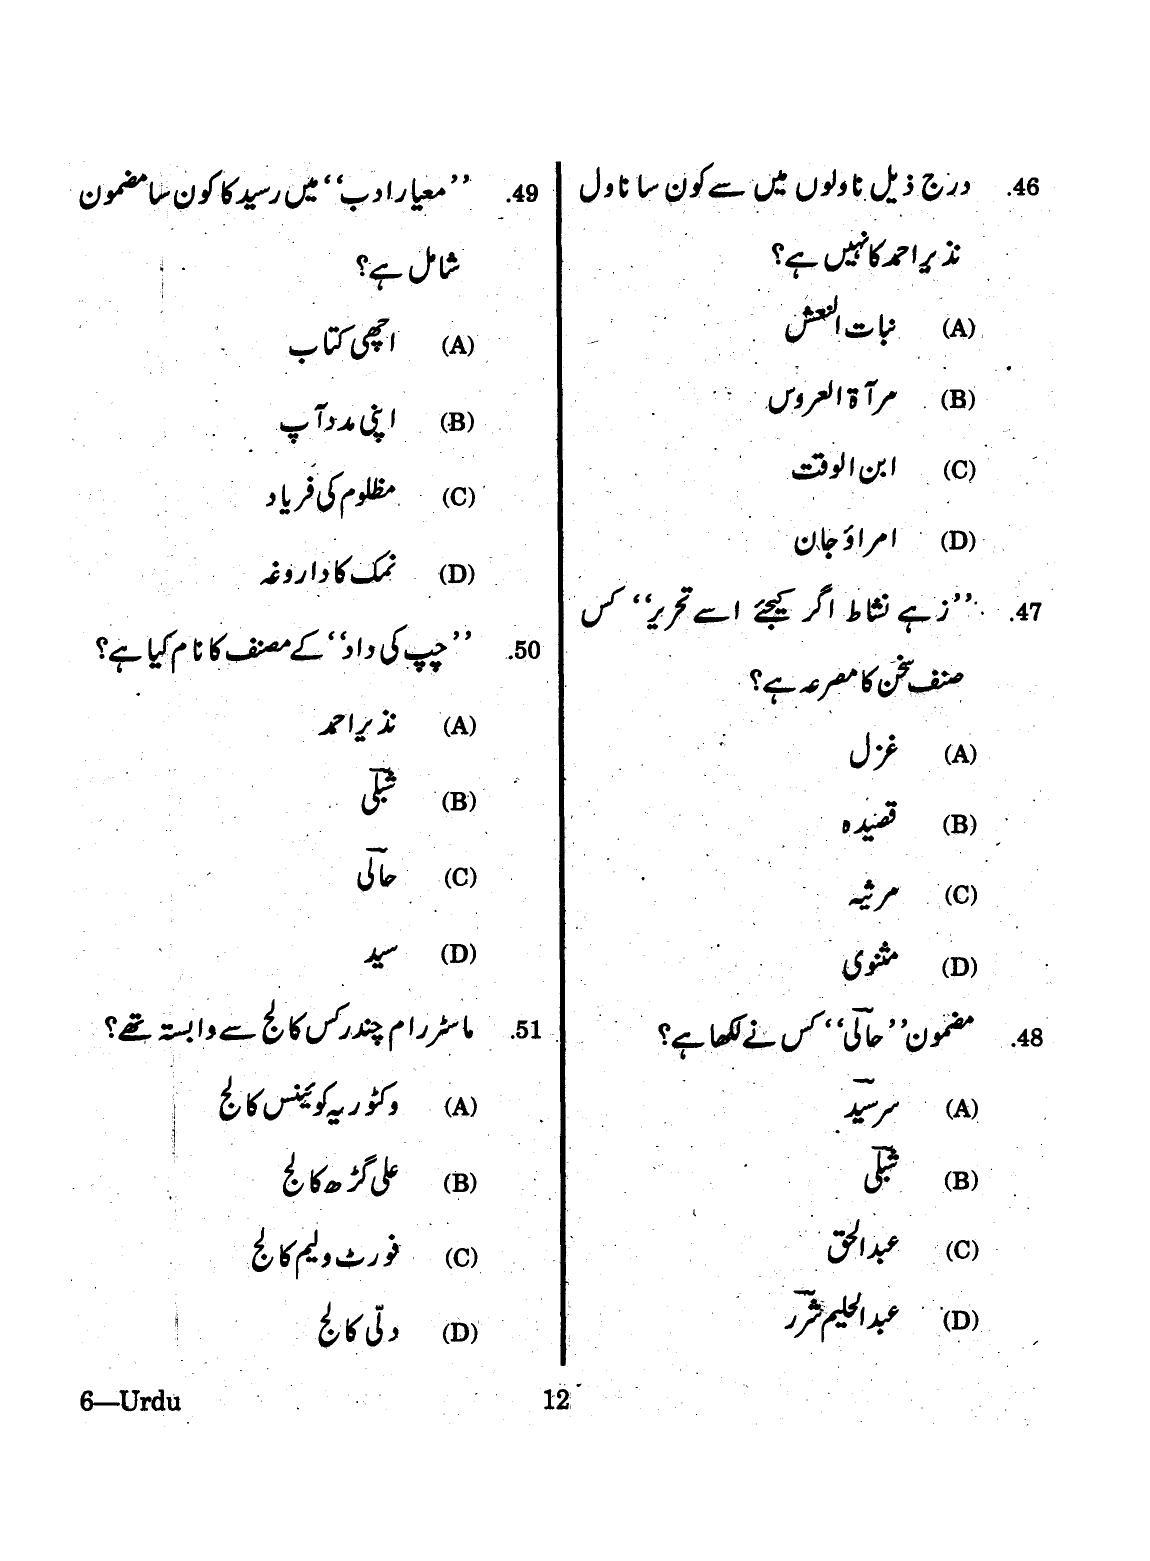 46. درج ذیل ناولوں میں سے کون سا ناول
نذیر احمد کا نہیں ہے؟
(A) نبات النعش
(B) مرآۃ العروس
(C) ابن الوقت
(D) امراؤ جان
47. ''زہے نشاط اگر کیجئے اسے تحریر'' کس
صنف سخن کا مصرعہ ہے؟
(A) غزل
(B) قصیدہ
(C) مرثیہ
(D) مثنوی
48. مضمون ''حالی'' کس نے لکھا ہے؟
(A) سرسید
(B) شبلی
(C) عبدالحق
(D) عبدالحلیم شرر
49. ''معیار ادب'' میں رسید کا کون سا مضمون
شامل ہے؟
(A) اچھی کتاب
(B) اپنی مدد آپ
(C) مظلوم کی فریاد
(D) نمک کا داروغہ
50. ''چپ کی داد'' کے مصنف کا نام کیا ہے؟
(A) نذیر احمد
(B) شبلی
(C) حالی
(D) سید
51. ماسٹر رام چندر کس کالج سے وابستہ تھے؟
(A) وکٹوریہ کوئینس کالج
(B) علی گڑھ کالج
(C) فورٹ ولیم کالج
(D) دلّی کالج
6—Urdu
12